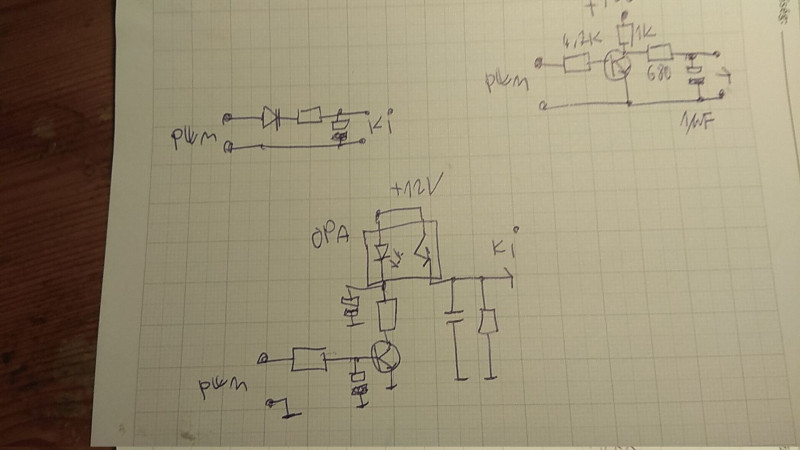 4,7K
1K
680
PWM
1µF
PWM
Ki
+12V
OPA
Ki
PWM